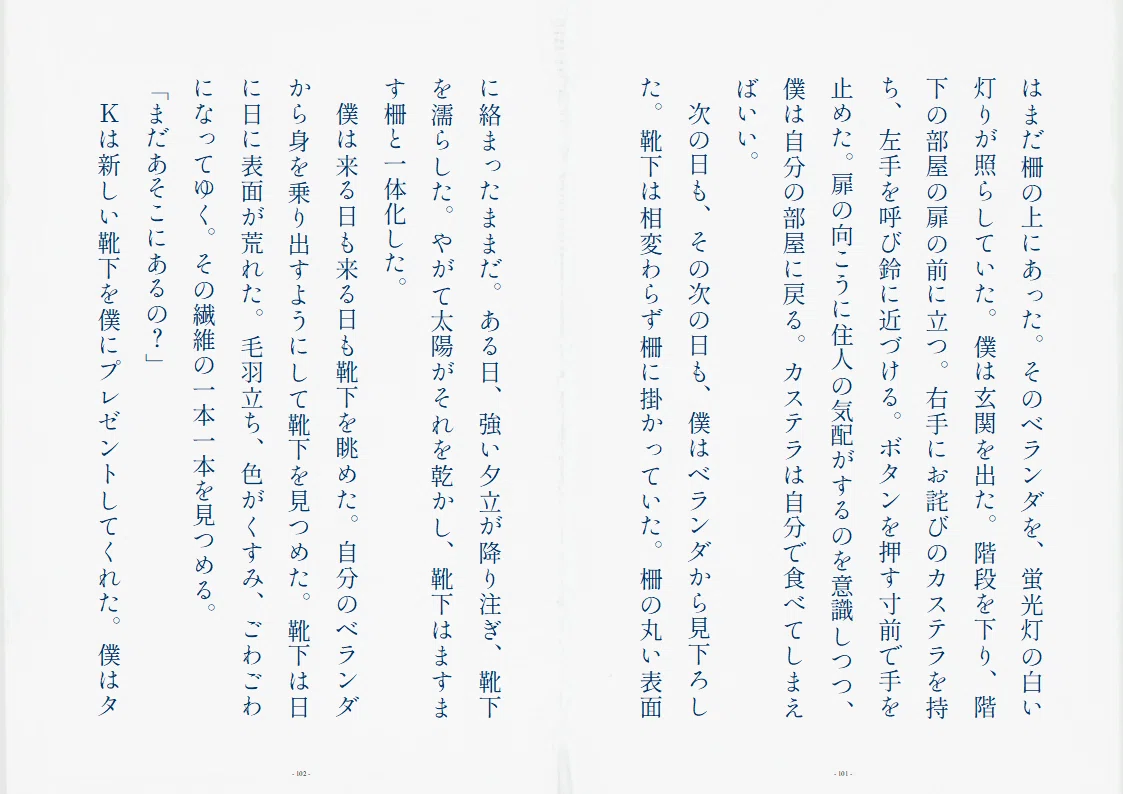 はまだ柵の上にあった。そのベランダを、蛍光灯の白い
灯りが照らしていた。僕は玄関を出た。階段を下り、階
下の部屋の扉の前に立つ。右手にお詫びのカステラを持
ち、左手を呼び鈴に近づける。ボタンを押す寸前で手を
止めた。扉の向こうに住人の気配がするのを意識しつつ、
僕は自分の部屋に戻る。カステラは自分で食べてしまえ
ばいい。
次の日も、その次の日も、僕はベランダから見下ろし
た。靴下は相変わらず柵に掛かっていた。柵の丸い表面
- 101 -
に絡まったままだ。ある日、強い夕立が降り注ぎ、靴下
を濡らした。やがて太陽がそれを乾かし、靴下はますま
す柵と一体化した。
僕は来る日も来る日も靴下を眺めた。自分のベランダ
から身を乗り出すようにして靴下を見つめた。靴下は日
に日に表面が荒れた。毛羽立ち、色がくすみ、ごわごわ
になってゆく。その繊維の一本一本を見つめる。
「まだあそこにあるの?」
Kは新しい靴下を僕にプレゼントしてくれた。僕はタ
- 102 -